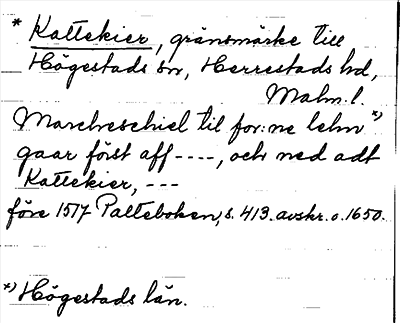 * Kattekier, gränsmärke till
Högestads sn, Herrestads hd,
Malm. l.
Marchreschiel til for:ne lehn *)
gaar först aff ----, och ned adt
Kattekier, ---
före 1517 Palteboken, s. 413. avskr. o. 1650.
*) Högestads län.